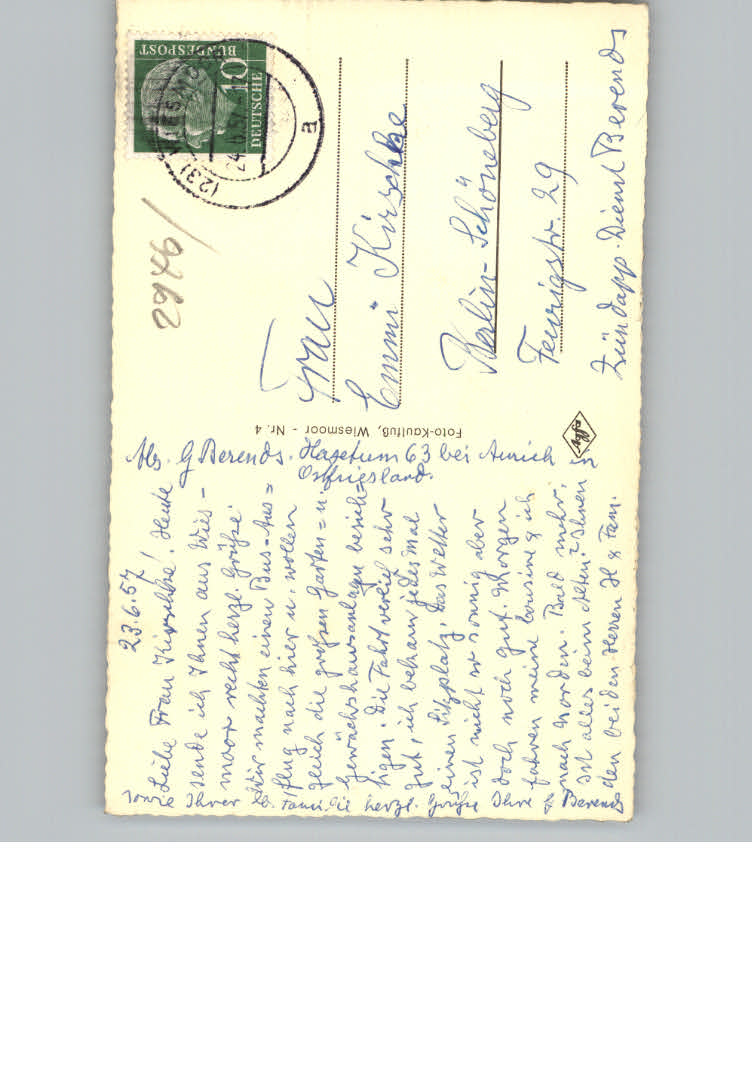 23.6.57
Liebe Frau Kirschke! Heute
sende ich Ihnen aus Wies-
moor recht herzl. Grüße.
Wir machten einen Bus-Aus=
flug nach hier u. wollen
gleich die großen Garten= u.
Gewächshausanlagen besich=
tigen. Die Fahrt verlief sehr
gut, ich bekam jedes mal
einen Sitzplatz, das Wetter
ist nicht so sonnig aber
doch noch gut. Morgen
fahren meine Cousine & ich
nach Norden. Bald mehr,
ist alles beim Alten? Ihnen
den beiden Herren H & Fam.
sowie Ihrer lb. Familie herzl. Grüße Ihre G Berends
Abs. G Berends. Haxtum 63 bei Aurich in
Ostfriesland.
Foto-Kaulfuß, Wiesmoor - Nr. 4
Agfa
Frau
Emmi Kirschke
Berlin-Schöneberg
Feurigstr. 29
Zündapp-Dienst Berends
2946/
DEUTSCHE
BUNDESPOST
10
(23) WIESMOOR
a